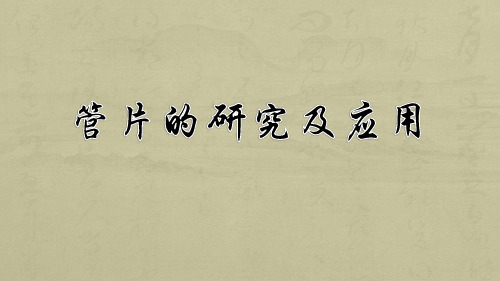 管片的研究及应用